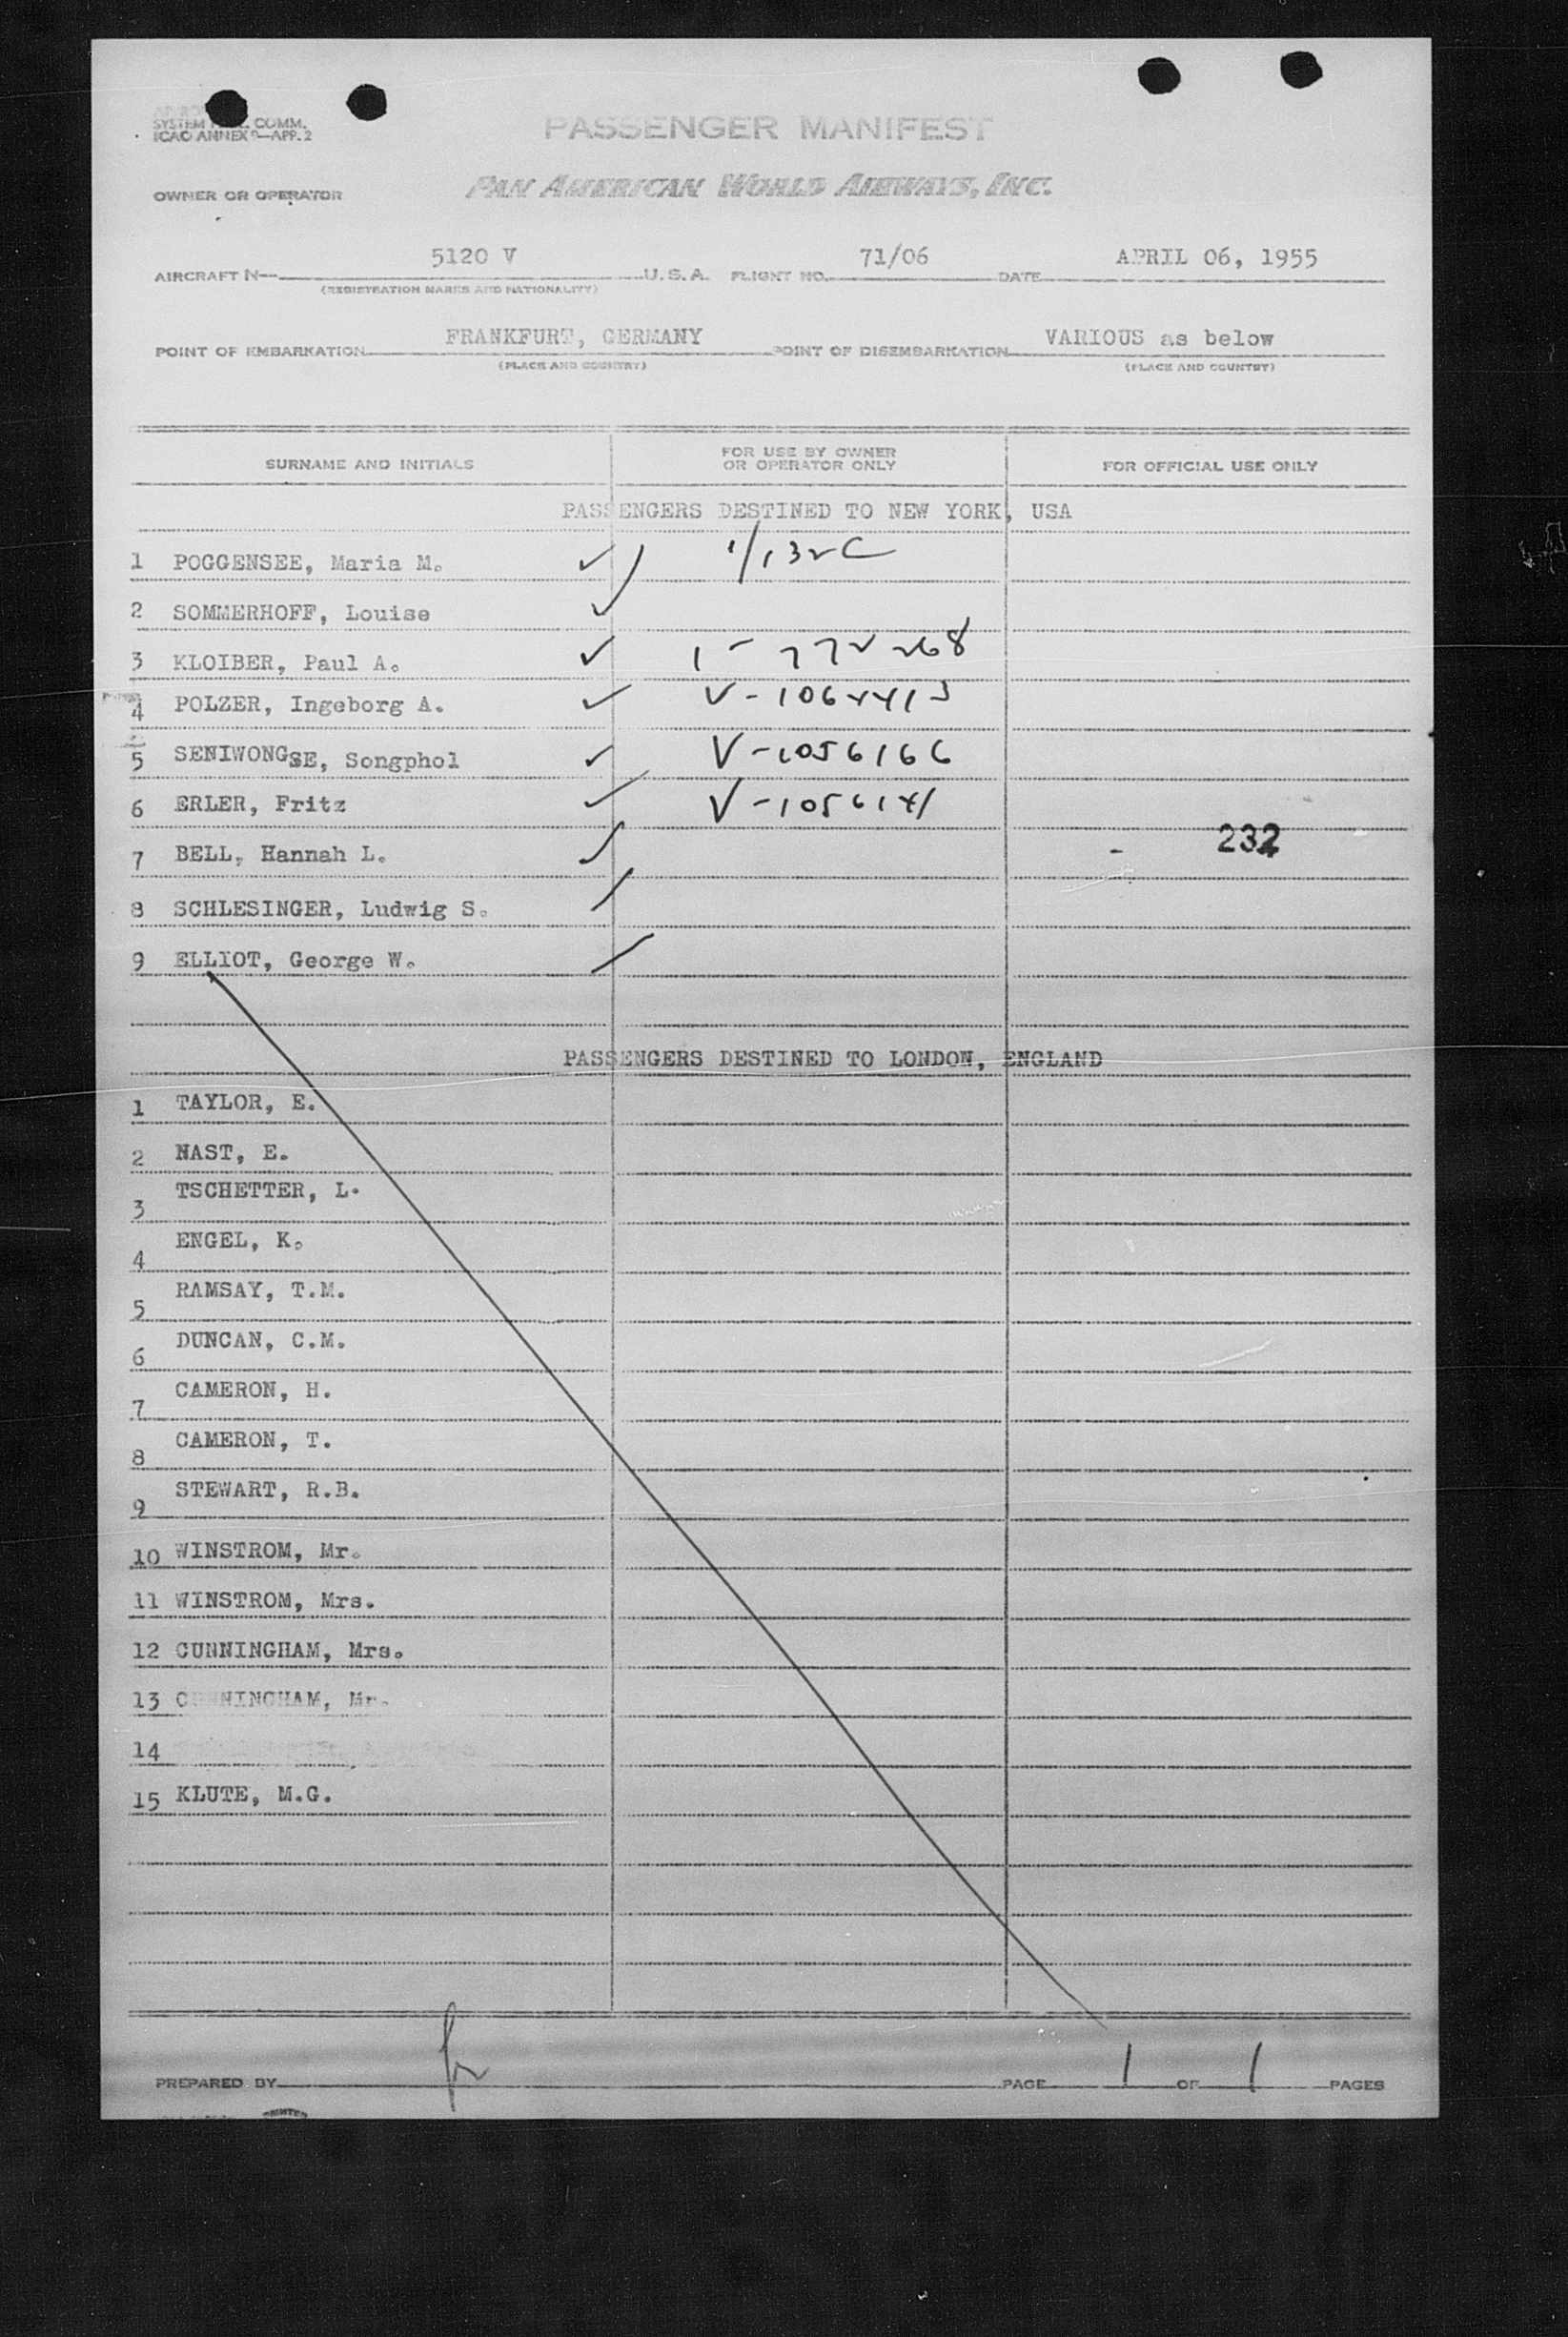 SYSTEM COMM.
ICAO ANNEX 9—APP. 2
PASSENGER MANIFEST
OWNER OR OPERATOR PAN AMERICAN WORLD AIRWAYS, INC.
AIRCRAFT N— 5120 V U.S.A. FLIGHT NO. 71/06 DATE APRIL 06, 1955
(REGISTRATION MARKS AND NATIONALITY)
POINT OF EMBARKATION FRANKFURT, GERMANY POINT OF DISEMBARKATION VARIOUS as below
(PLACE AND COUNTRY) (PLACE AND COUNTRY)
SURNAME AND INITIALS FOR USE BY OWNER OR OPERATOR ONLY FOR OFFICIAL USE ONLY
PASSENGERS DESTINED TO NEW YORK, USA
1 POGGENSEE, Maria M.
2 SOMMERHOFF, Louise
3 KLOIBER, Paul A. 1-772268
4 POLZER, Ingeborg A.
5 SENIWONGSE, Songphol V-1056166
6 ERLER, Fritz V-1056141
7 BELL, Hannah L. - 232
8 SCHLESINGER, Ludwig S.
9 ELLIOT, George W.
PASSENGERS DESTINED TO LONDON, ENGLAND
1 TAYLOR, E.
2 NAST, E.
3 TSCHETTER, L.
4 ENGEL, K.
5 RAMSAY, T.M.
6 DUNCAN, C.M.
7 CAMERON, H.
8 CAMERON, T.
9 STEWART, R.B.
10 WINSTROM, Mr.
11 WINSTROM, Mrs.
12 CUNNINGHAM, Mrs.
13 CUNNINGHAM, Mr.
14
15 KLUTE, M.G.
PREPARED BY PAGE 1 OF 1 PAGES